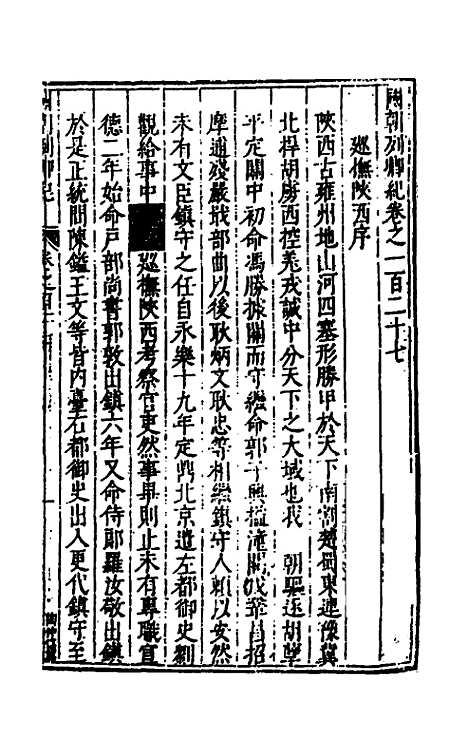 國朝列卿紀卷之一百二十七
廵撫陝西序
陝西古雍州地山河四塞形勝甲於天下南制楚蜀東連豫冀
北捍胡虜西控羌戎誠中分天下之大域也我 朝驅逐胡孽
平定關中初命馮勝據關而守繼命郭子興搤潼關
摩通殘嚴戢部曲以後耿炳文耿忠等相繼鎮守人頼以安然
未有文臣鎮守之任自永樂十九年定鼎北京遣左都御史劉
觀給事中 廵撫陝西考察官吏然事畢則止未有專職宣
德二年始命戶部尚書郭敦出鎮六年又命侍郎羅汝敬出鎮
於是正統間陳鎰王文等皆内臺右都御史出入更代鎮守至